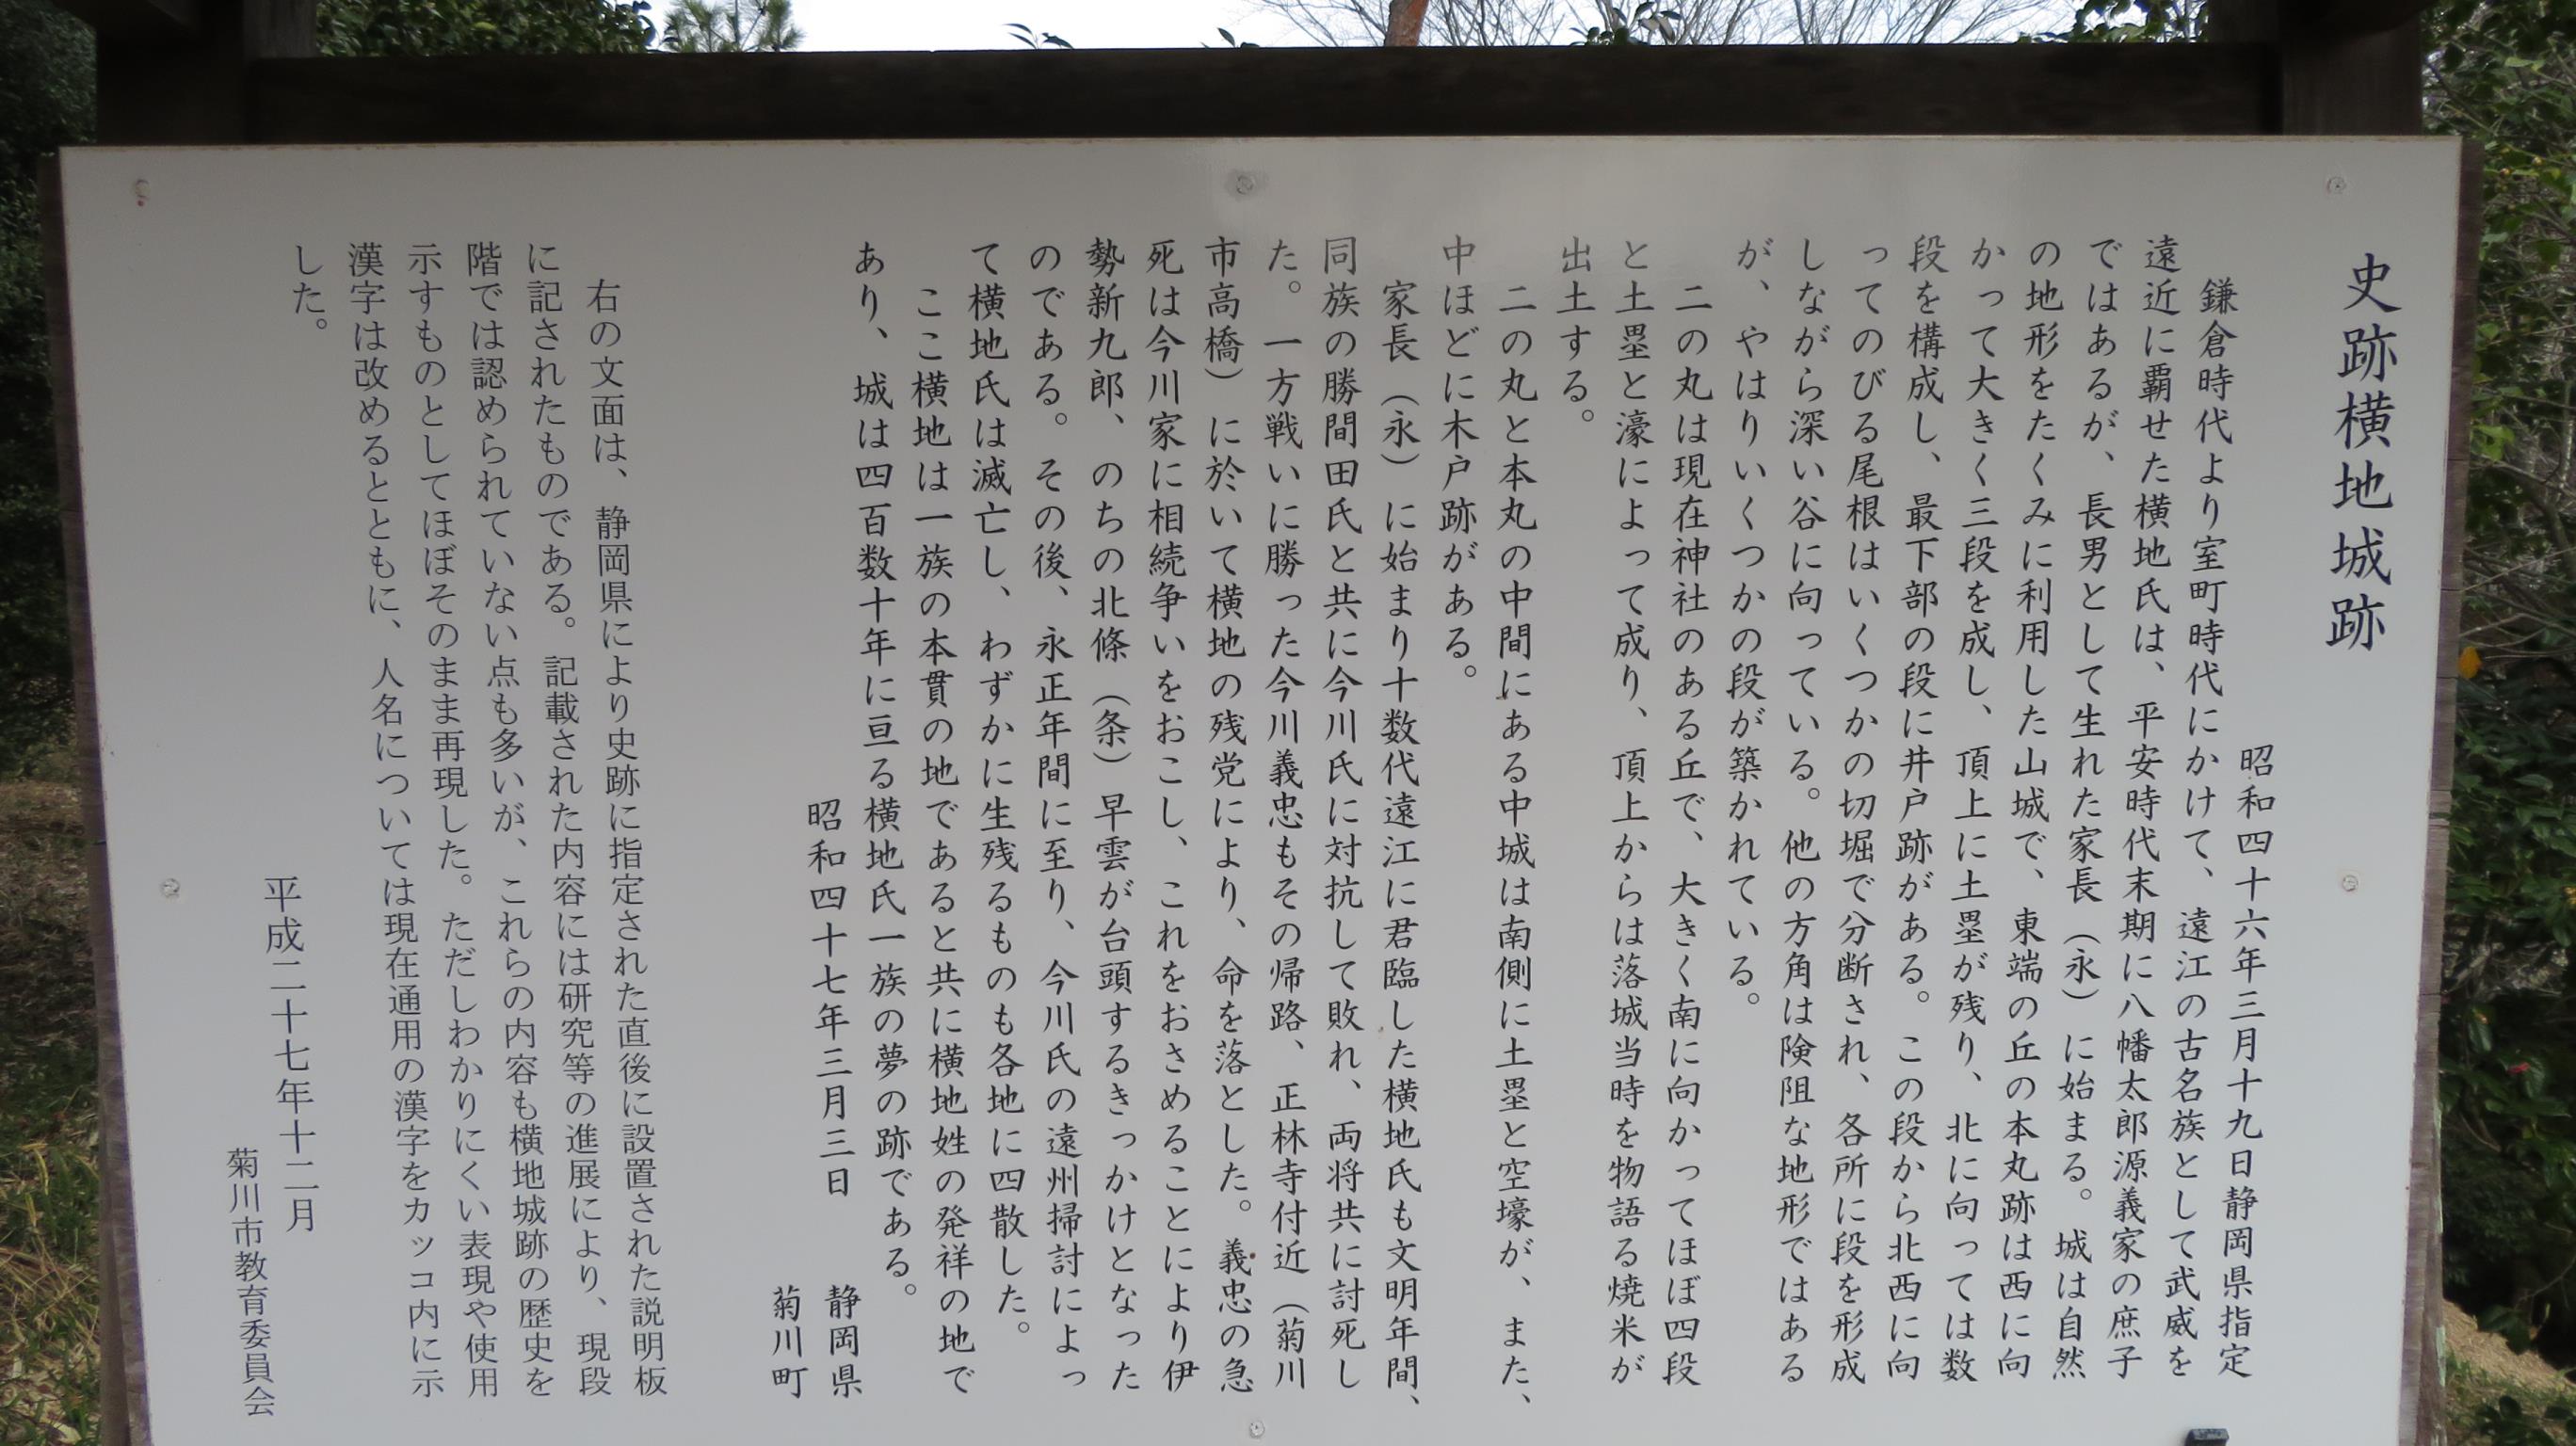 史跡横地城跡
昭和四十六年三月十九日静岡県指定
鎌倉時代より室町時代にかけて、遠江の古名族として武威を
遠近に覇せた横地氏は、平安時代末期に八幡太郎源義家の庶子
ではあるが、長男として生れた家長（永）に始まる。城は自然
の地形をたくみに利用した山城で、東端の丘の本丸跡は西に向
かって大きく三段を成し、頂上に土塁が残り、北に向っては数
段を構成し、最下部の段に井戸跡がある。この段から北西に向
ってのびる尾根はいくつかの切堀で分断され、各所に段を形成
しながら深い谷に向っている。他の方角は険阻な地形ではある
が、やはりいくつかの段が築かれている。
二の丸は現在神社のある丘で、大きく南に向かってほぼ四段
と土塁と濠によって成り、頂上からは落城当時を物語る焼米が
出土する。
二の丸と本丸の中間にある中城は南側に土塁と空壕が、また、
中ほどに木戸跡がある。
家長（永）に始まり十数代遠江に君臨した横地氏も文明年間、
同族の勝間田氏と共に今川氏に対抗して敗れ、両将共に討死し
た。一方戦いに勝った今川義忠もその帰路、正林寺付近（菊川
市高橋）に於いて横地の残党により、命を落とした。義忠の急
死は今川家に相続争いをおこし、これをおさめることにより伊
勢新九郎、のちの北條（条）早雲が台頭するきっかけとなった
のである。その後、永正年間に至り、今川氏の遠州掃討によっ
て横地氏は滅亡し、わずかに生残るものも各地に四散した。
ここ横地は一族の本貫の地であると共に横地姓の発祥の地で
あり、城は四百数十年に亘る横地氏一族の夢の跡である。
昭和四十七年三月三日　静岡県
菊川町
右の文面は、静岡県により史跡に指定された直後に設置された説明板
に記されたものである。記載された内容には研究等の進展により、現段
階では認められていない点も多いが、これらの内容も横地城跡の歴史を
示すものとしてほぼそのまま再現した。ただしわかりにくい表現や使用
漢字は改めるとともに、人名については現在通用の漢字をカッコ内に示
した。
平成二十七年十二月
菊川市教育委員会